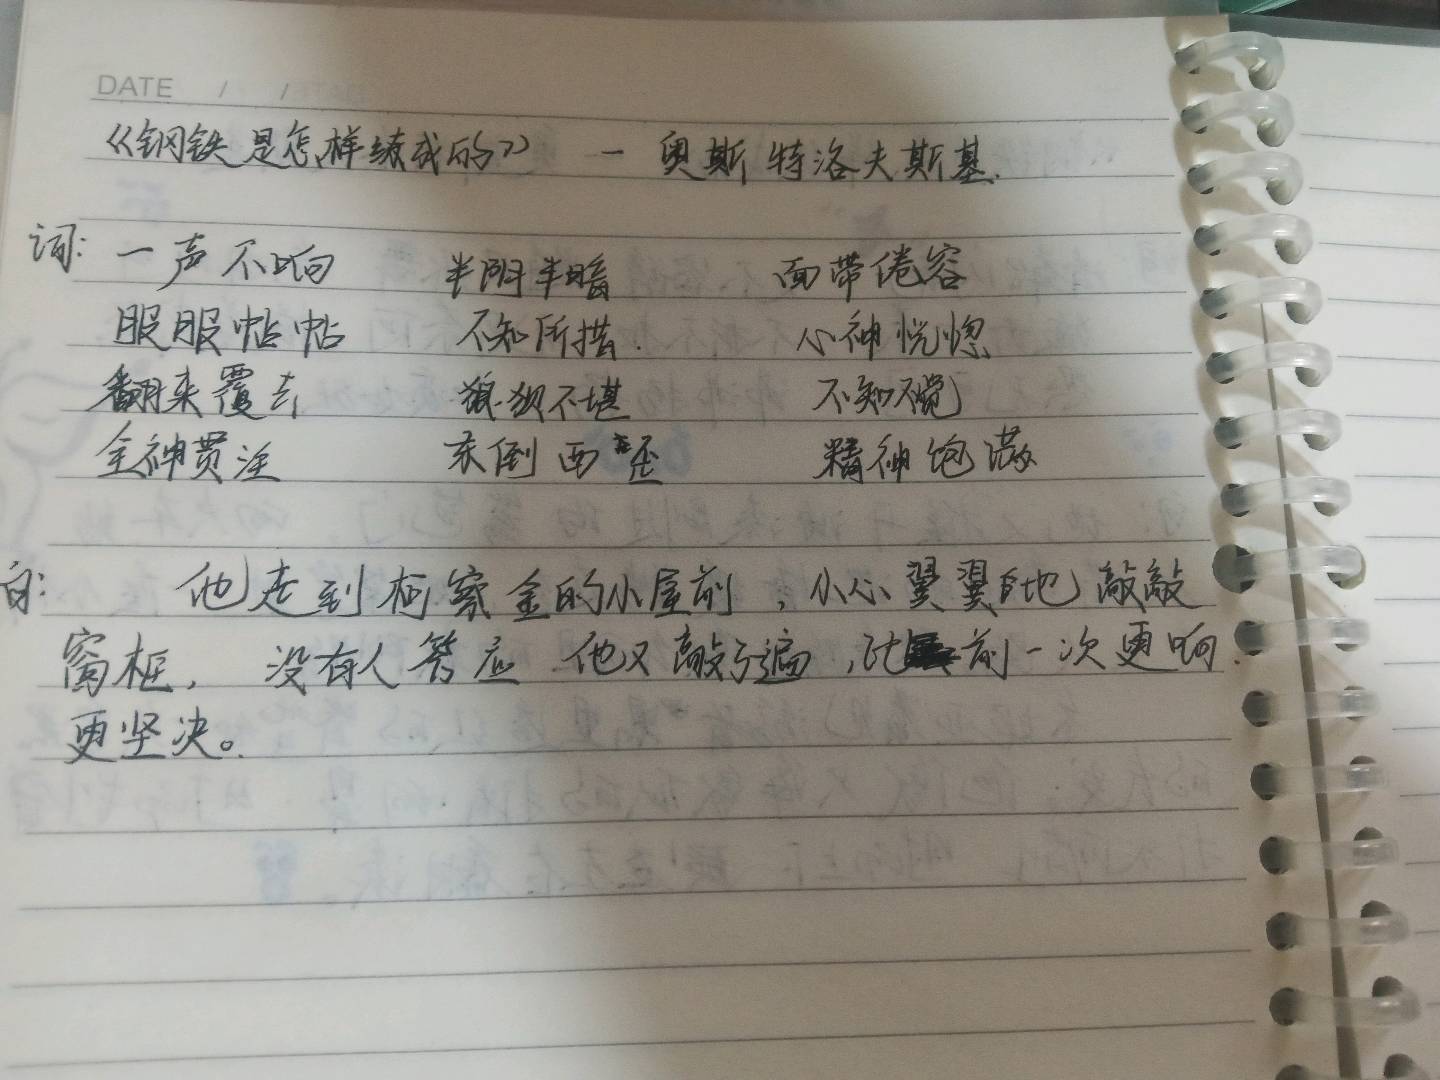 DATE / /
《钢铁是怎样练成的》 — 奥斯特洛夫斯基.
词: 一声不响 半阴半暗 面带倦容
服服帖帖 不知所措. 心神恍惚
翻来覆去 狼狈不堪 不知不觉
全神贯注 东倒西歪 精神饱满
句: 他走到柯察金的小屋前，小心翼翼地敲敲
窗框，没有人答应 他又敲了遍，比前一次更响.
更坚决。